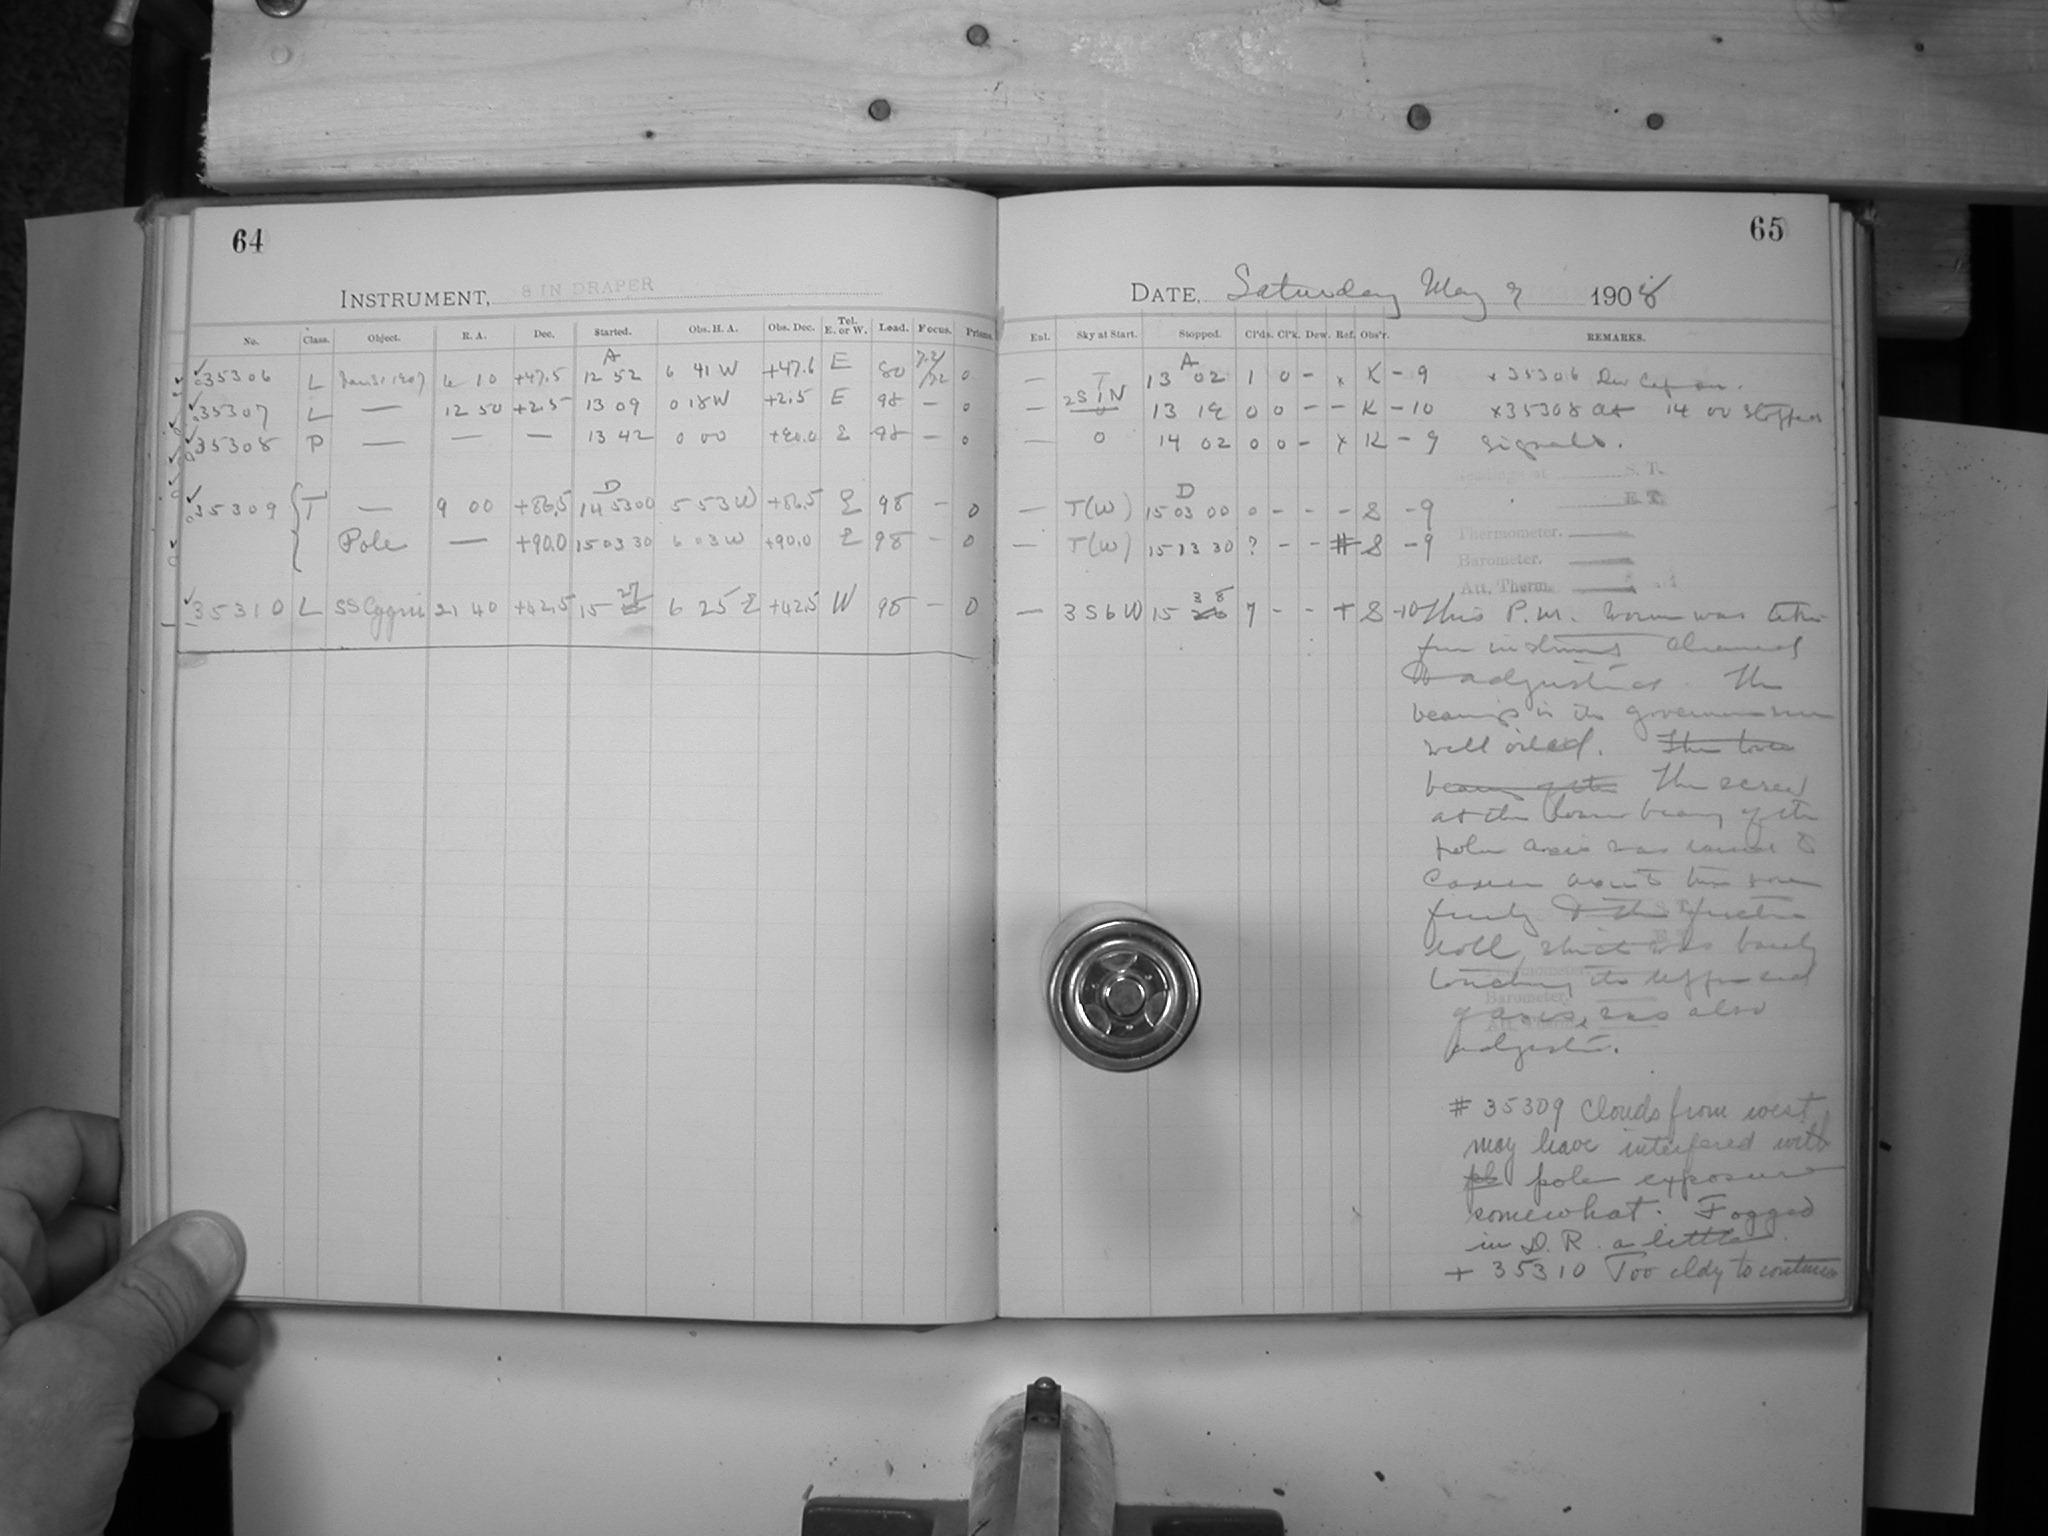 64
INSTRUMENT, 8 IN DRAPER
No. Class. Object. R. A. Dec. Started. Obs. H. A. Obs. Dec. Tel. E. or W. Load. Focus. Prisms.
A
35306 L Jan 31 1907 4 10 +47.5 12 52 6 41 W +47.6 E 80 0
35307 L — 12 50 +2.5 13 09 0 18 W +2.5 E 98 — 0
35308 P — — — 13 42 0 00 E 98 — 0
D
35309 T — 9 00 +86.5 14 53 00 5 53 W +86.5 E 98 — 0
Pole — +90.0 15 03 30 6 03 W +90.0 E 98 — 0
35310 L SS Cygni 21 40 +42.5 15 27 6 25 E +42.5 W 98 — 0
65
DATE, Saturday May 9 1908
Enl. Sky at Start. Stopped. Cl'ds. Cl'k. Dew. Ref. Obs'r. REMARKS.
A
— T 13 02 1 0 – x K – 9 x 35306 Dew Cap on.
— 2S1N 13 19 0 0 – – K – 10 x 35308 At 14 00 stopped
— 0 14 02 0 0 – x K – 9 signals.
D
— T(W) 15 03 00 0 – – – S – 9
— T(W) 15 13 30 ? – – # S – 9
— 3S6W 15 38 7 – – + S – 10 This P.M. worm was taken
from instrument cleaned
& adjusted. The
bearings in the governor were
well oiled. The lower
bearing of the The screw
at the lower bearing of the
polar axis was raised to
cause axis to turn more
freely & the friction
roll, which was barely
touching the upper end
of axis, was also
adjusted.
# 35309 Clouds from west
may have interfered with
pole exposure
somewhat. Fogged
in D. R. a little.
+ 35310 Too cldy to continue
Readings at S. T.
E. T.
Thermometer.
Barometer.
Att. Therm.
Barometer.